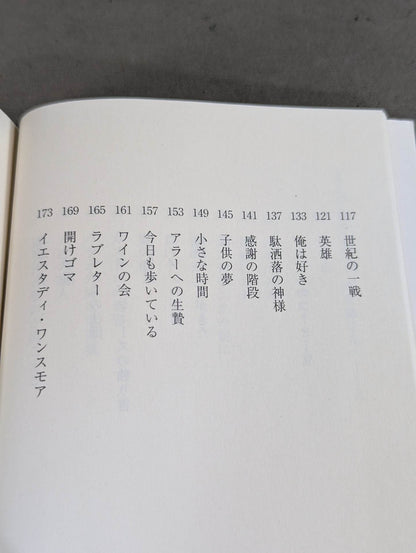 117 世紀の一戦
121 英雄
133 俺は好き
137 駄洒落の神様
141 感謝の階段
145 子供の夢
149 小さな時間
153 アラーへの生贄
157 今日も歩いている
161 ワインの会
165 ラブレター
169 開けゴマ
173 イエスタディ・ワンスモア